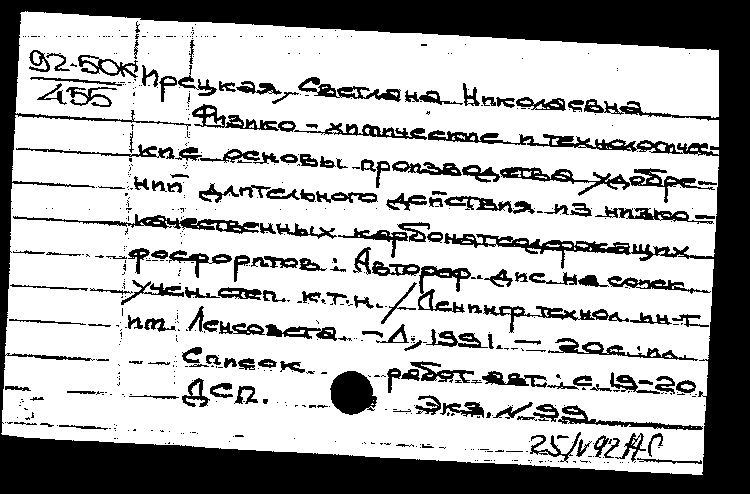 92-50к Ирецкая, Светлана Николаевна
455
Физико-химические и технологичес-
кие основы производства удобре-
ний длительного действия из низко-
качественных карбонатсодержащих
фосфоритов: Автореф. дис. на соиск.
учен. степ. к.т.н. / Ленингр. технол. ин-т
им. Ленсовета. – Л., 1991. – 20с.: ил.
Список работ авт.: с. 19-20.
ДСП. Экз. №99
25/IV 92